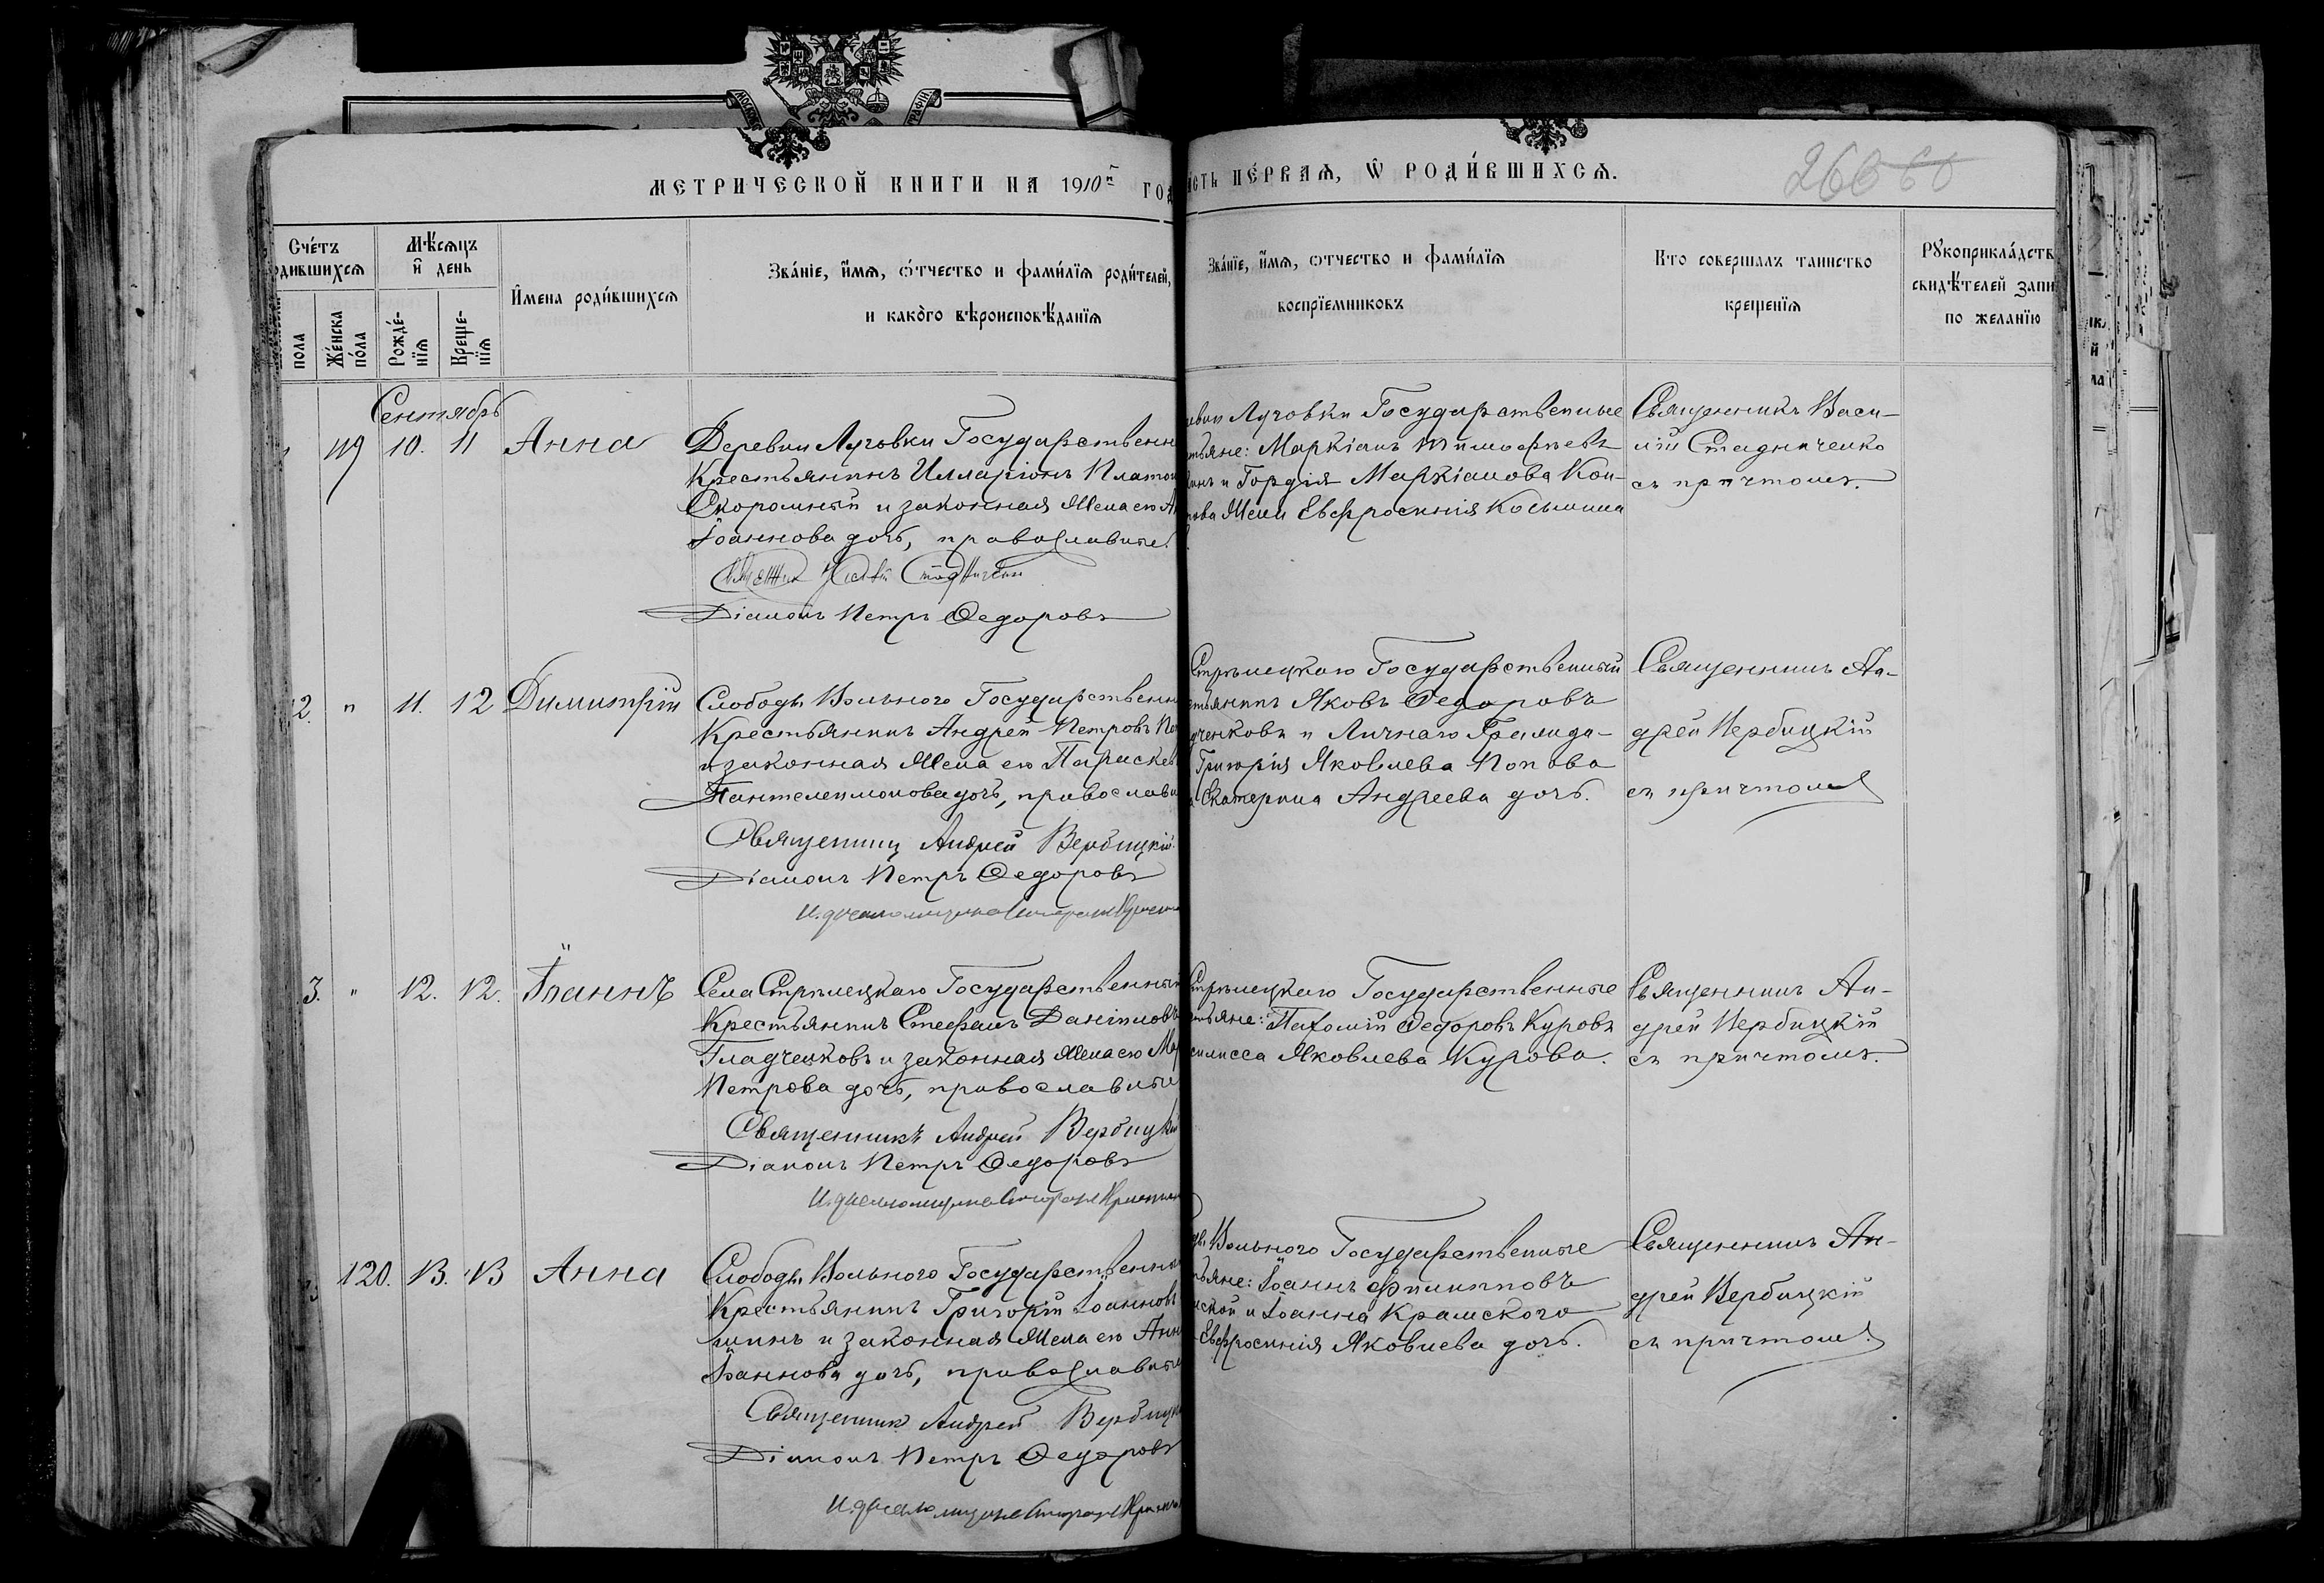 МЕТРИЧЕСКОЙ КНИГИ НА 1910й ГОД
СТЬ ПЕ́РВАѦ, Ѿ РОДИ́ВШИХСѦ.
266 60
Сче́тъ
одившихсѧ
Мѣ́сѧцъ
и день
И́мена роди́вшихсѧ
Зва́нїе, и́мѧ, о́тчество и фами́лїѧ роди́телей,
и како́го вѣроисповѣ́данїѧ
пола
Же́нска по́ла
Рожде́-нїѧ
Креще-нїѧ
Зва́нїе, и́мѧ, отчество и фами́лїѧ
воспрїемниковъ
Кто совершалъ таинство
крещенїѧ
Рꙋкоприкла́дств
свидѣ́телей запи
по желанїю
Сентябрь
119 10. 11 Анна
Деревни Луговки Государственн
Крестьянинъ Илларіонъ Платон
Скоромный и законная жена его А
Іоаннова дочь, православные.
Діаконъ Петръ Федоровъ
Луговки Государственные
тьяне: Маркіанъ Тимофеевъ
и Гордія Маркіанова Кон-
ова жена Евфросинія Космина
Священникъ Васи-
лій Стадниченко
съ причтомъ.
12. " 11. 12 Димитрій
Слободы Вольного Государственн
Крестьянинъ Андрей Петровъ
и законная жена его Параскев
Пантелеимонова дочь, православн
Священник Андрей Вербицкій
Діаконъ Петръ Федоровъ
Стрѣлецкаго Государственный
стьянинъ Яковъ Федоровъ
дченковъ и Личнаго Гражда-
Григорія Яковлева Попова
Екатерина Андреева дочь.
Священникъ Ан-
дрей Вербицкій
съ причтомъ
3. " 12. 12. Іоаннъ
Села Стрѣлецкаго Государственный
Крестьянинъ Стефанъ Даніиловъ
Гладченковъ и законная жена его Мар
Петрова дочь, православные
Священникъ Андрей Вербицкій
Діаконъ Петръ Федоровъ
Стрѣлецкаго Государственные
тьяне: Пахомій Федоровъ Куровъ
силисса Яковлева Курова.
Священникъ Ан-
дрей Вербицкій
съ причтомъ.
120. 13. 13 Анна
Слободы Вольного Государственн
Крестьянинъ Григорій Іоанновъ
и законная жена его Анн
Іоаннова дочь, православные
Священник Андрей Вербицк
Діаконъ Петръ Федоровъ
Вольного Государственные
тьяне: Іоаннъ Филипповъ
ской и Іоанна Крамского
Евфросинія Яковлева дочь.
Священникъ Ан-
дрей Вербицкій
съ причтомъ.